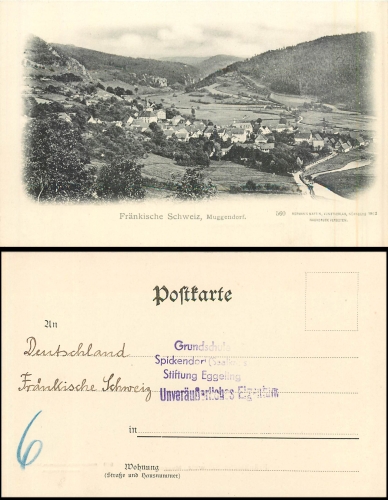 Fränkische Schweiz, Muggendorf.
560
Postkarte
An
Deutschland
Fränkische Schweiz
Grundschule
Spickendorf
Stiftung Eggeling
Unveräußerliches Eigentum
6
in
Wohnung
(Straße und Hausnummer)